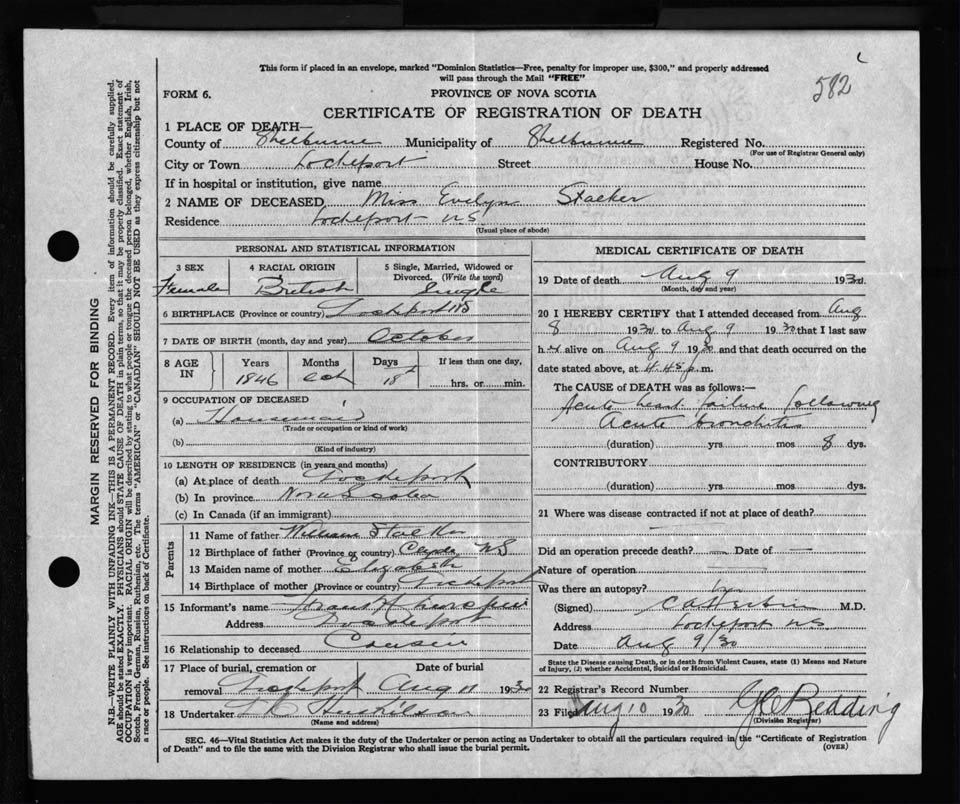 582
This form if placed in an envelope, marked "Dominion Statistics—Free, penalty for improper use, $300," and properly addressed
will pass through the Mail "FREE"
FORM 6. PROVINCE OF NOVA SCOTIA
CERTIFICATE OF REGISTRATION OF DEATH
1 PLACE OF DEATH—
County of Shelburne Municipality of Shelburne Registered No.
(For use of Registrar General only)
City or Town Lockeport Street House No.
If in hospital or institution, give name
2 NAME OF DECEASED Miss Evelyn Stalker
Residence Lockeport N.S.
(Usual place of abode)
PERSONAL AND STATISTICAL INFORMATION
3 SEX 4 RACIAL ORIGIN 5 Single, Married, Widowed or
Divorced. (Write the word)
Female British Single
6 BIRTHPLACE (Province or country) Lockport NS
7 DATE OF BIRTH (month, day and year) October
8 AGE IN Years Months Days If less than one day,
1846 Oct 18th hrs. or min.
9 OCCUPATION OF DECEASED
(a) Housemaid
(Trade or occupation or kind of work)
(b)
(Kind of industry)
10 LENGTH OF RESIDENCE (in years and months)
(a) At place of death Lockeport
(b) In province Nova Scotia
(c) In Canada (if an immigrant)
Parents
11 Name of father William Stalker
12 Birthplace of father (Province or country) Clyde NS
13 Maiden name of mother Elizabeth
14 Birthplace of mother (Province or country) Lockeport
15 Informant's name
Address Lockeport
16 Relationship to deceased Cousin
17 Place of burial, cremation or Date of burial
removal Lockeport Aug 11 1930
18 Undertaker
(Name and address)
MEDICAL CERTIFICATE OF DEATH
19 Date of death Aug 9 1930
(Month, day and year)
20 I HEREBY CERTIFY that I attended deceased from Aug
8 1930 to Aug 9 1930 that I last saw
her alive on Aug 9 1930 and that death occurred on the
date stated above, at 4.45 p.m.
The CAUSE of DEATH was as follows:—
Acute heart failure following
Acute bronchitis
(duration) yrs. mos 8 dys.
CONTRIBUTORY
(duration) yrs. mos. dys.
21 Where was disease contracted if not at place of death?
Did an operation precede death? — Date of —
Nature of operation
Was there an autopsy?
(Signed) M.D.
Address Lockeport N.S.
Date Aug 9/30
State the Disease causing Death, or in death from Violent Causes, state (1) Means and Nature
of Injury, (2) whether Accidental, Suicidal or Homicidal.
22 Registrar's Record Number
23 Filed Aug 10 1930 Redding
(Division Registrar)
SEC. 46—Vital Statistics Act makes it the duty of the Undertaker or person acting as Undertaker to obtain all the particulars required in the "Certificate of Registration
of Death" and to file the same with the Division Registrar who shall issue the burial permit. (OVER)
MARGIN RESERVED FOR BINDING
N.B.—WRITE PLAINLY WITH UNFADING INK—THIS IS A PERMANENT RECORD. Every item of information should be carefully supplied.
AGE should be stated EXACTLY. PHYSICIANS should STATE CAUSE OF DEATH in plain terms, so that it may be properly classified. Exact statement of
OCCUPATION is very important. RACIAL ORIGIN will be described by stating to what people or tongue the deceased person belonged, whether English, Irish,
Scotch, French, German, Russian, Ruthenian, etc. The terms "AMERICAN" or "CANADIAN" SHOULD NOT BE USED as they express citizenship but not
a race or people. See instructions on back of Certificate.